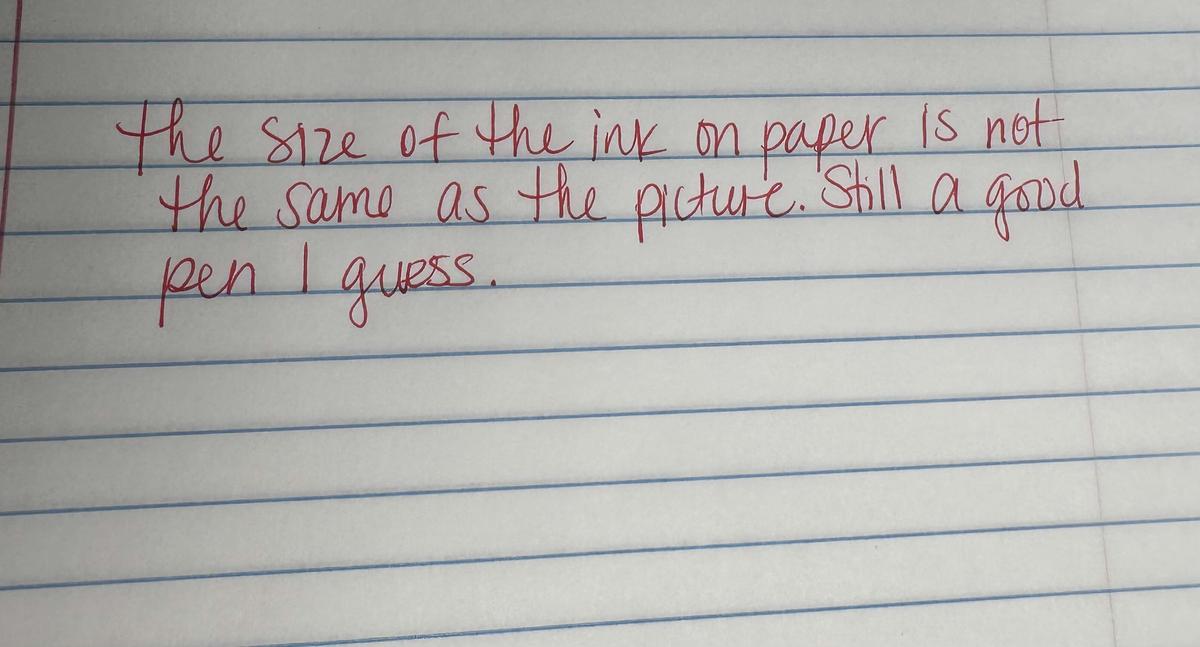 the size of the ink on paper is not
the same as the picture. Still a good
pen I guess.